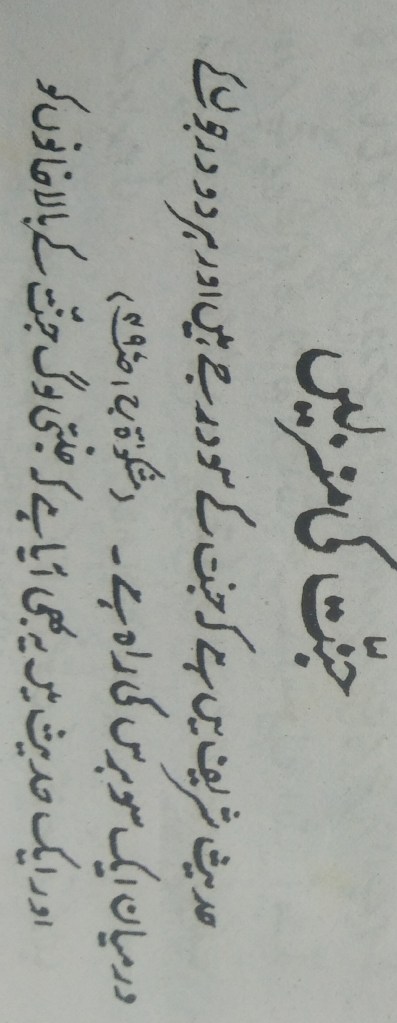 جنّت کی منزلیں
حدیث شریف میں ہے کہ جنت کے سو درجے ہیں اور ہر دو درجوں کے
درمیان ایک سو برس کی راہ ہے ۔ (مشکوٰۃ ج۲ ص۴۹۷)
اور ایک حدیث میں یہ بھی آیا ہے کہ جنتی لوگ جنّت کے بالا خانوں کو